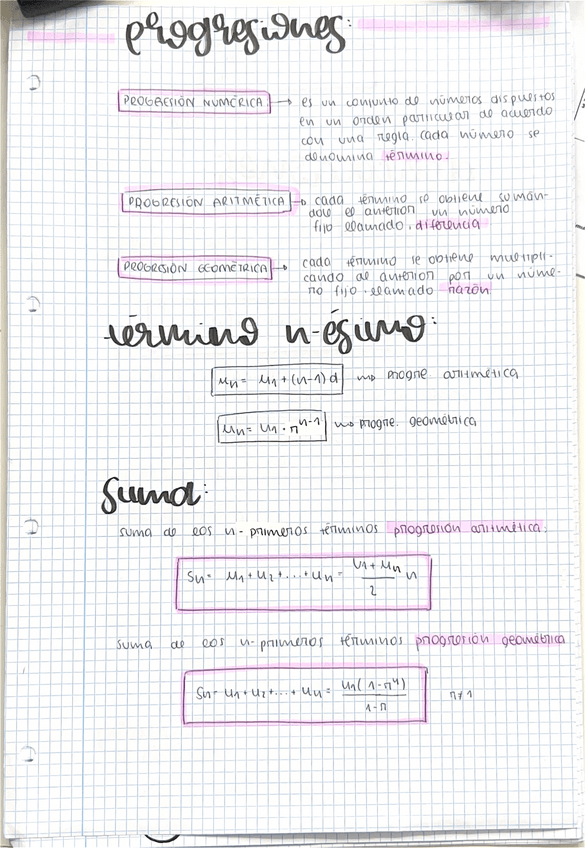 progresiones:
PROGRESIÓN NUMÉRICA → es un conjunto de números dispuestos
en un orden particular de acuerdo
con una regla. cada número se
denomina término.
PROGRESIÓN ARITMÉTICA → cada término se obtiene sumán-
dole el anterior un número
fijo llamado. diferencia
PROGRESIÓN GEOMÉTRICA → cada término se obtiene multipli-
cando al anterior por un núme-
ro fijo. llamado razón
término n-ésimo:
un = u1 + (n-1) d → Progre. aritmética
un = u1 · r^(n-1) → Progre. geométrica
Suma:
suma de los n-primeros términos progresión aritmética.
Sn = u1 + u2 + ... + un = (u1 + un)/2 n
suma de los n-primeros términos progresión geométrica
Sn = u1 + u2 + ... + un = u1(1-r^n)/(1-r) r≠1